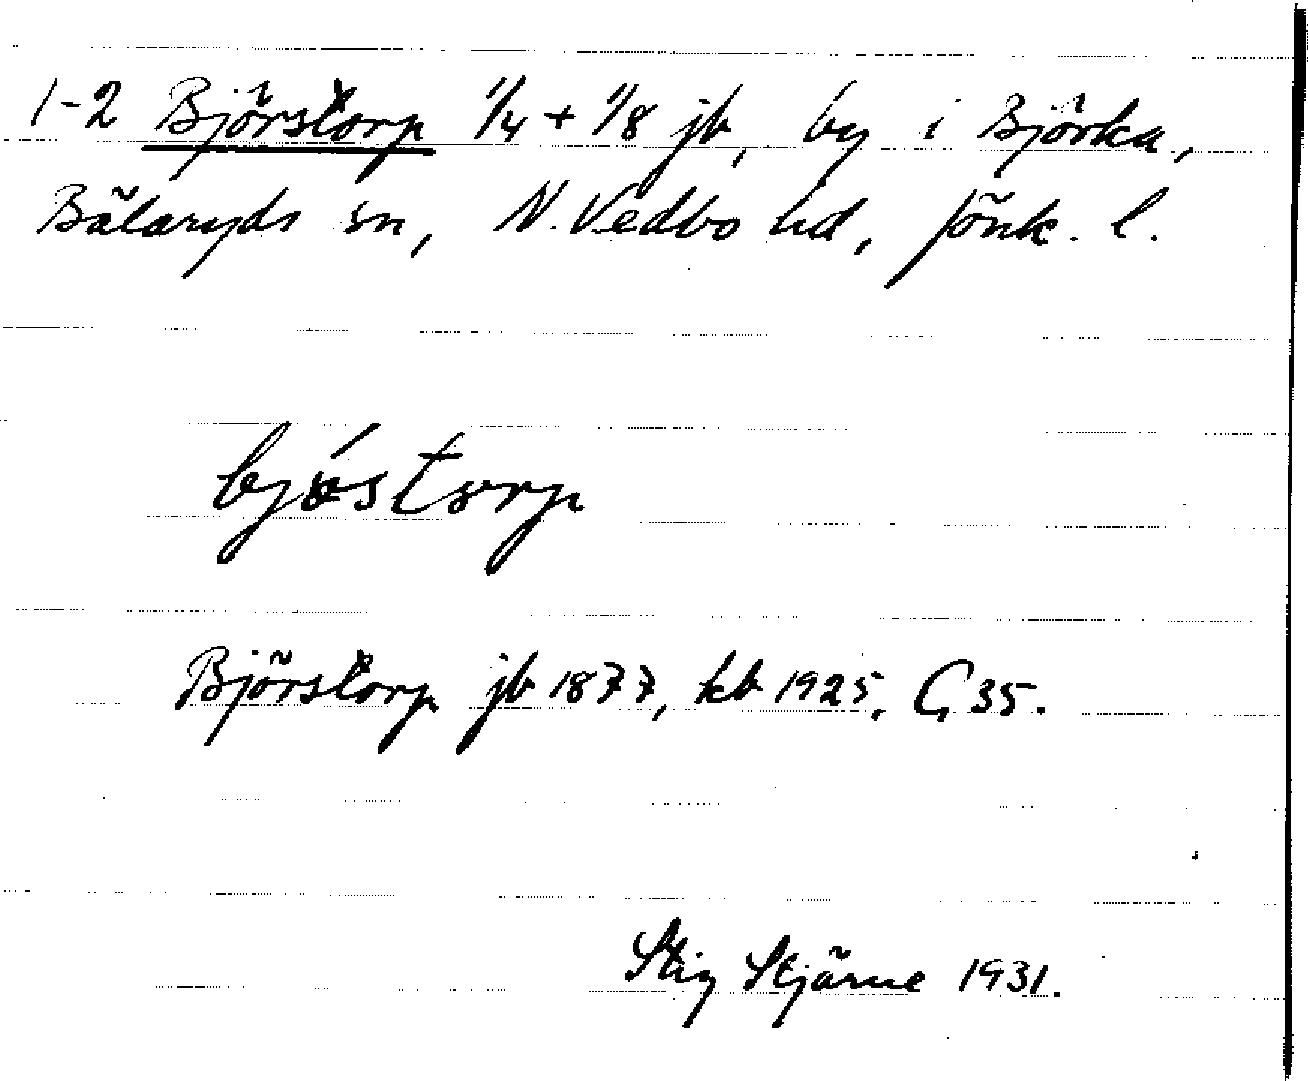 1-2 Björstorp 1/4 + 1/8 jb, by i Björka,
Bälaryds sn, N. Vedbo hd, Jönk. l.
bjǿstorp
Björstorp jb 1877, kb 1925, G 35.
Stig Stjärne 1931.